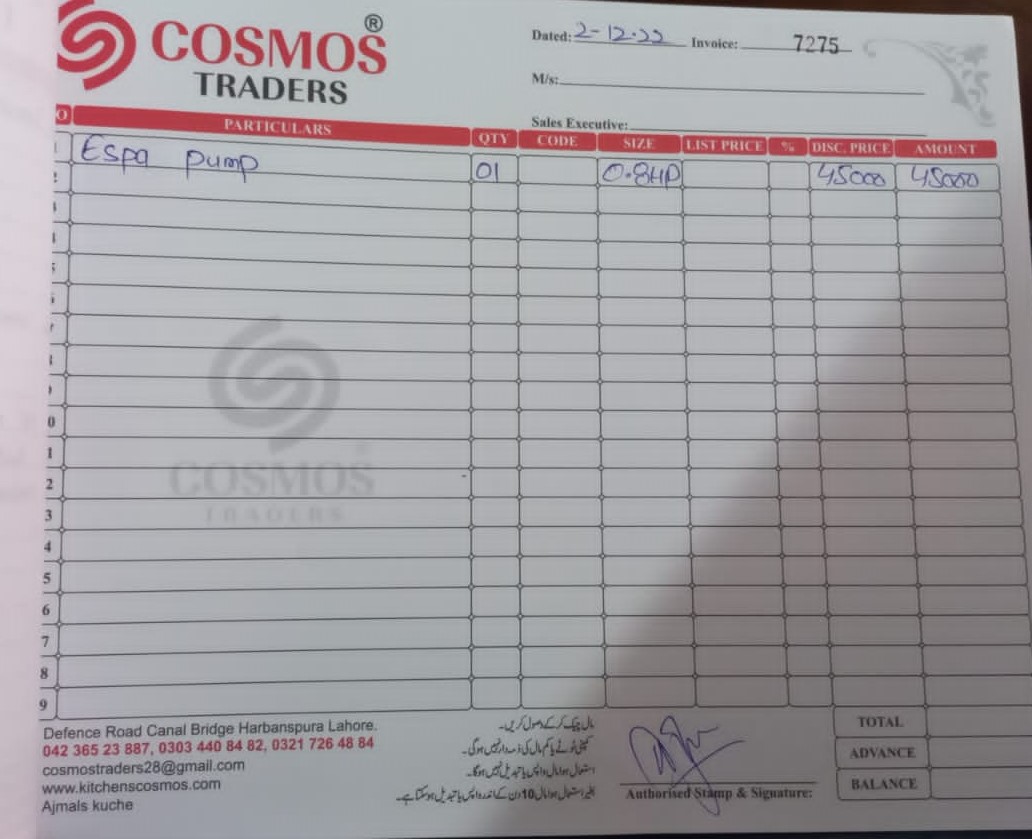 COSMOS®
TRADERS
Dated: 2-12-22 Invoice: 7275
M/s:
Sales Executive:
O PARTICULARS QTY CODE SIZE LIST PRICE % DISC. PRICE AMOUNT
1 Espa pump 01 0.8HP 45000 45000
2
3
4
5
6
7
8
9
0
1
2
3
4
5
6
7
8
9
COSMOS
TRADERS
Defence Road Canal Bridge Harbanspura Lahore.
042 365 23 887, 0303 440 84 82, 0321 726 48 84
cosmostraders28@gmail.com
www.kitchenscosmos.com
Ajmals kuche
مال چیک کر کے وصول کریں۔
کمپنی ٹوٹنے یا کم مال کی ذمہ دار نہیں ہوگی۔
استعمال ہوا مال واپس یا تبدیل نہیں ہوگا۔
بغیر استعمال ہوا مال 10 دن کے اندر واپس یا تبدیل ہوسکتا ہے۔
Authorised Stamp & Signature:
TOTAL
ADVANCE
BALANCE